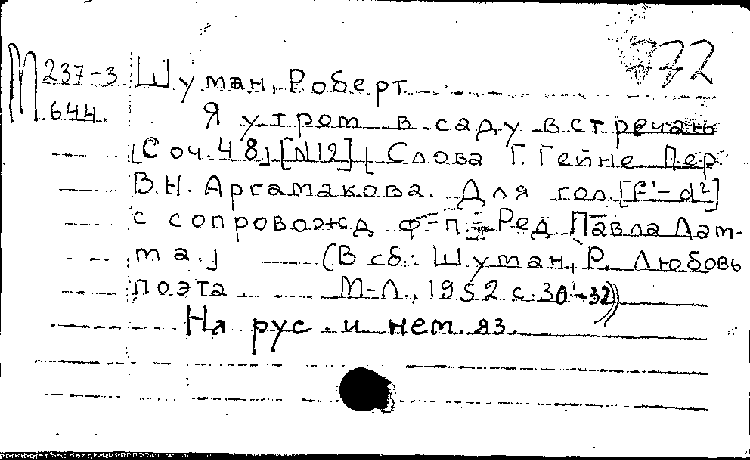 772
М 237-3 Шуман, Роберт
644. Я утром в саду встречаю
[Соч. 48] [N12] [Слова Г. Гейне Пер.
В.Н. Аргамакова. Для гол. [f¹-d²]
с сопровожд ф-п. Ред Павла Лам-
ма.] (В сб.: Шуман, Р. Любовь
поэта М-Л., 1952 с. 30-32)
На рус. и нем. яз.